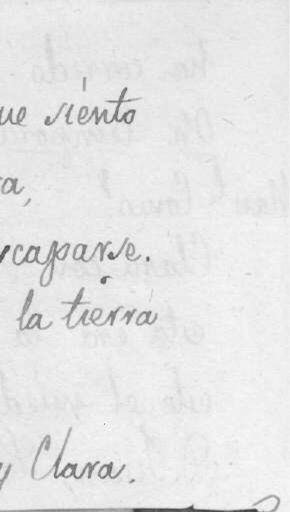 ue siento
a,
scaparse.
la tierra
y Clara.